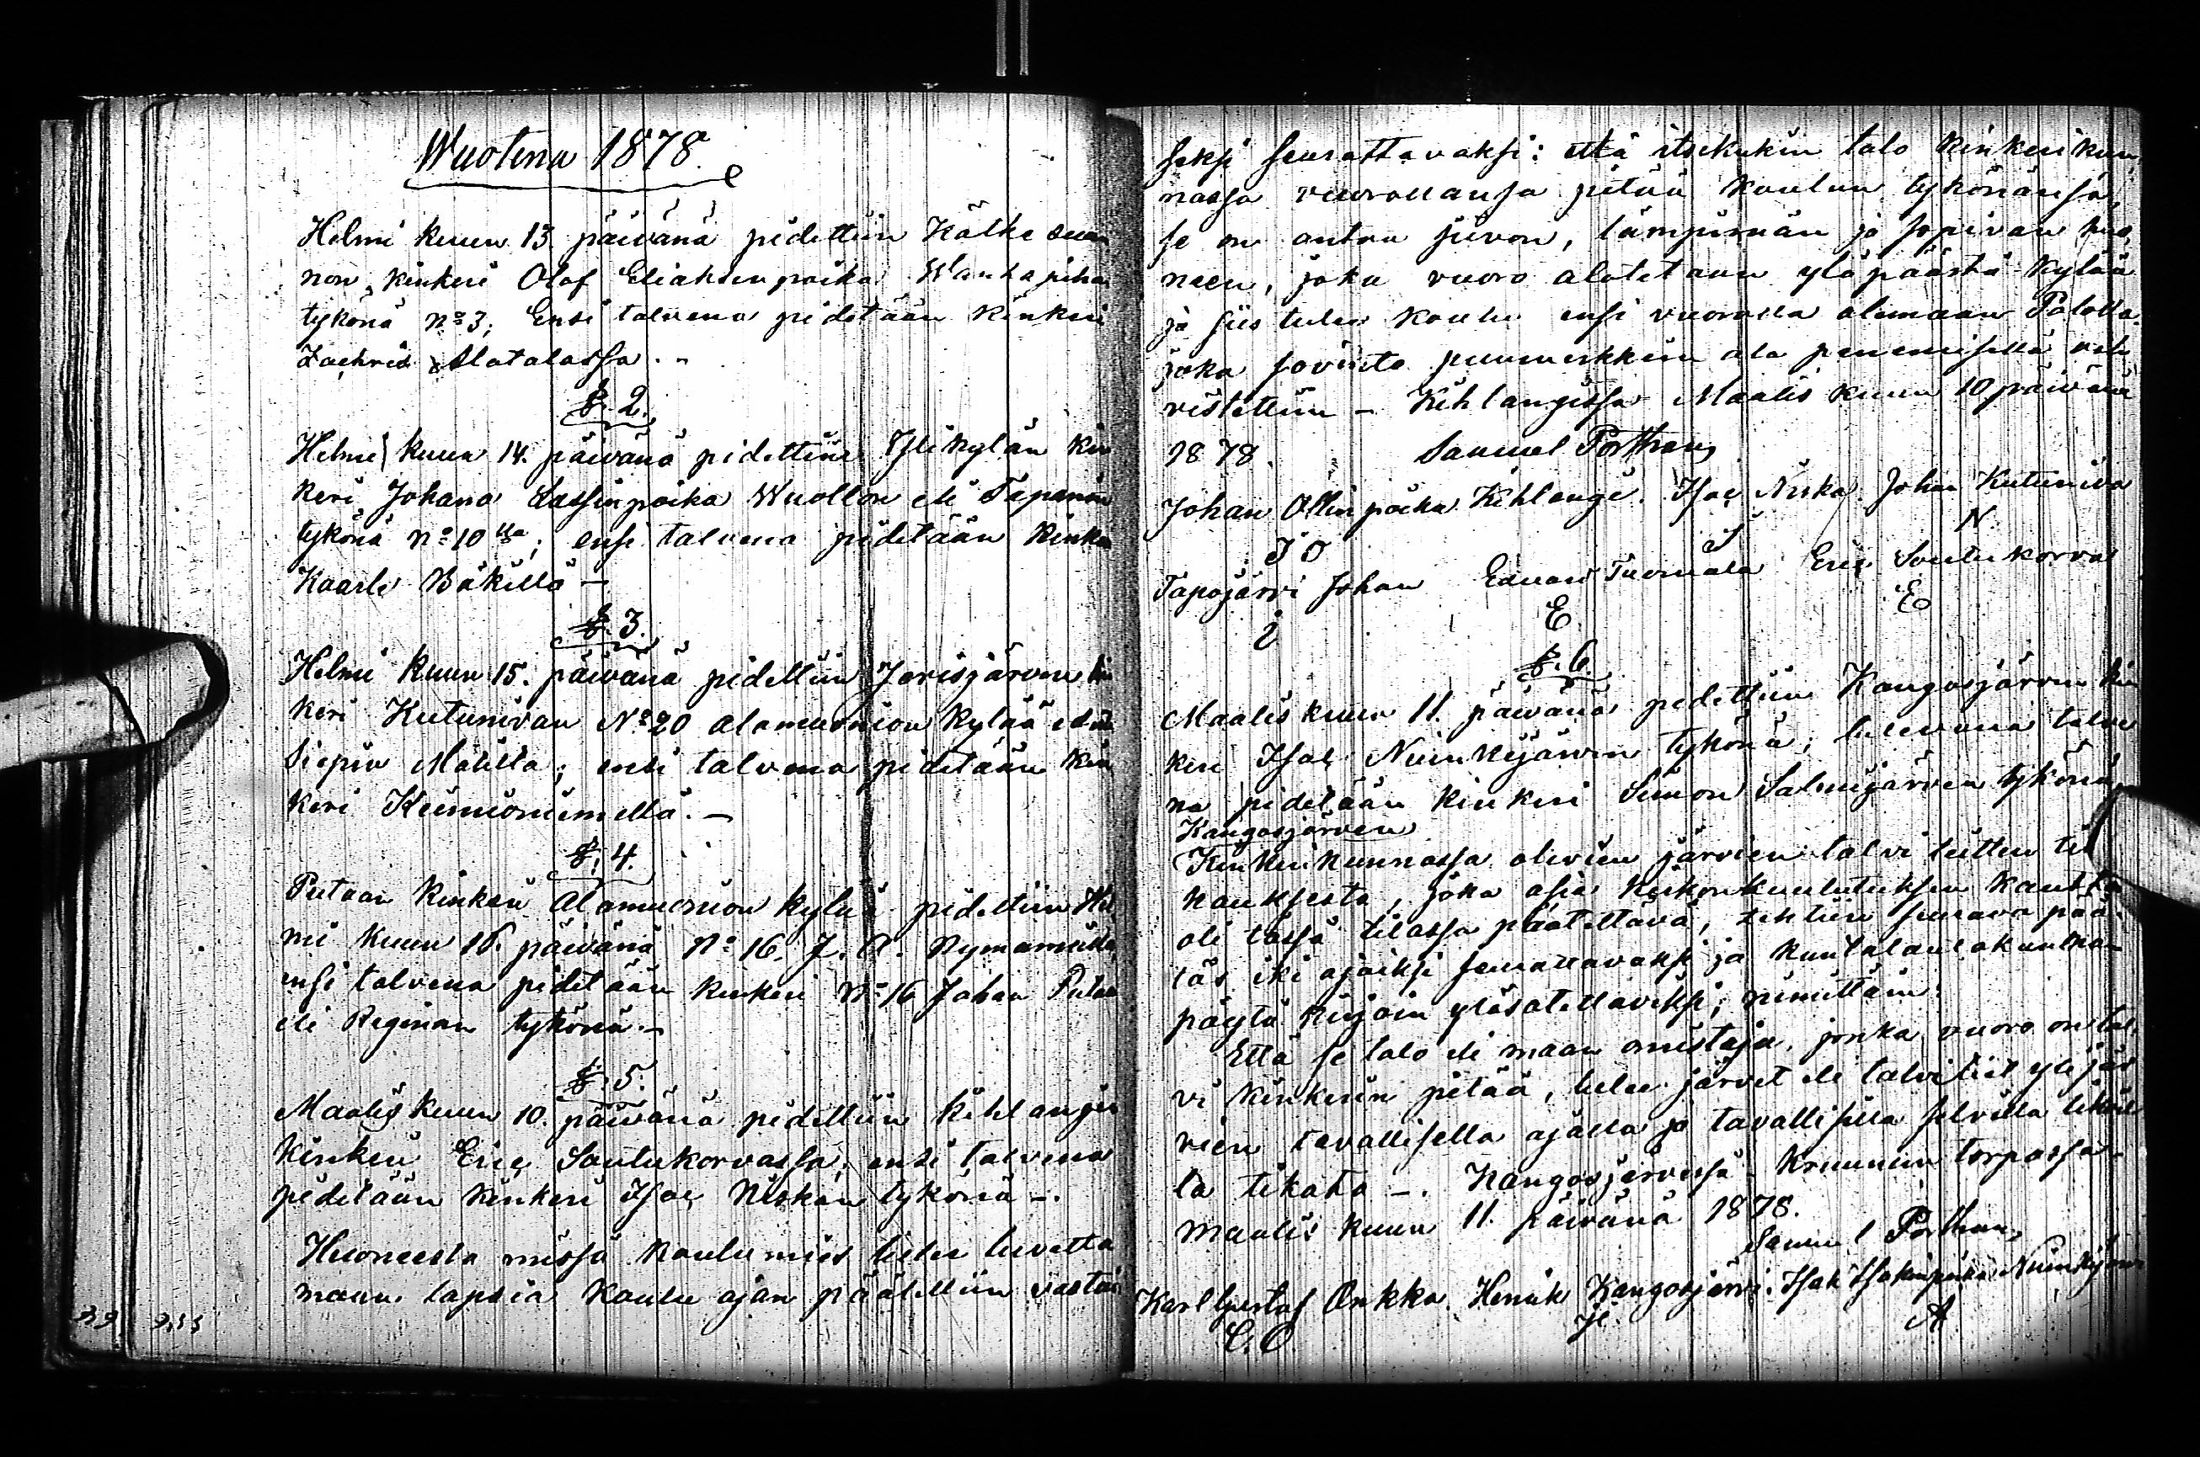 Wuotena 1878.
Helmi kuun 13. päivänä pidettiin Kätkesuan
non kinkeri Olof Eliaksenpoika Wanhapiha
tykönä No 3; Ensi talvena pidetään kinkeri
Zachris Alatalossa.
§. 2.
Helmi kuun 14. päivänä pidettiin Ylikylän kin
keri Johano Lassinpoika Wuollon eli Tapanin
tykönä No 10; ensi talvena pidetään kinke
Kaarle Bäkillä –
§. 3.
Helmi kuun 15. päivänä pidettiin Jerisjärven kin
keri Kutunivan No 20 alamuonion kylää
Siepin Matilla; ensi talvena pidetään kin
keri Keimiöniemellä. –
§. 4.
Putaan kinkeri Alamuonion kylää pidettiin Hel
mi kuun 16. päivänä No 16. J. A. Nymannilla,
ensi talvena pidetään kinkeri No 16 Johan Putaa
eli Reginan tykönä. –
§. 5.
Maalis kuun 10. päivänä pidettiin Kihlangin
kinkeri Eric Soutukorvassa, ensi talvena
pidetään kinkeri Isac Niskan tykönä –.
Huoneesta missä koulumies tulee luvetta
maan lapsia koulu ajan päätettiin vastai
seksi seurattavaksi: että itsekukin talo kinkerikun
nassa vuorollansa pitää koulun tykönänsä,
se on antaa siivon, lämpimän ja sopivan huo,
neen, joka vuoro aloitetaan yläpäästä kylää
ja siis tulee koulu ensi vuorolla olemaan Palolla.
joka sovinto puumerkkein ala penemisellä vah
vistettiin – Kihlangissa Maalis kuun 10 päivänä
1878. Samuel Porthan,
Johan Ollinpoika Kihlangi. Isac Niska. Johan Kutuniva
J O I N
Tapojärvi Johan Eduard Tuomala Eric Soutukorva
i E E
§. 6.
Maalis kuun 11. päivänä pidettiin Kangosjärven kin
keri Isac Niinikijärven tykönä; tulevana talve
na pidetään kinkeri Simon Salmijärven tykönä,
Kangosjärven
Kinkerikunnassa olevien järvien talvi teitten tik
kauksesta, joka asia kirkonkuulutuksen kautta
oli tässä tilassa päätettävä, tehtiin seurava pää
tös iki ajaksi seurattavaksi ja kuntalautakunna
pöytä kirjoin yläsotettaveksi; nimittäin:
Että se talo eli maan omistaja, jonka vuoro on tal
vi kinkerin pitää, tulee järvet eli talvitiet yli jär
vien tavallisella ajalla ja tavallisilla selvillä tikuil
la tikata –. Kangosjärvessä Kruunun torpassa
Maalis kuun 11. päivänä 1878.
Samuel Porthan,
Karl Gustaf Onkka. Henrik Kangosjärvi. Isak Isakinpoika Niinikijärvi
C. O. H. A